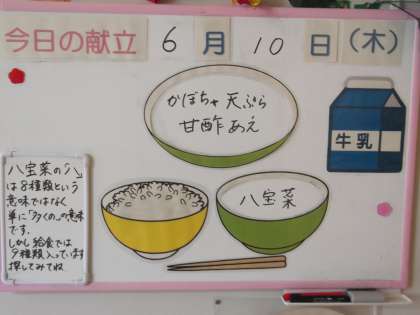 今日の献立 6月10日(木)
かぼちゃ天ぷら
甘酢あえ
牛乳
八宝菜
八宝菜の「八」
は8種類という
意味ではなく
単に「多くの」の意味
です。
しかし給食では
9種類入っています
探してみてね